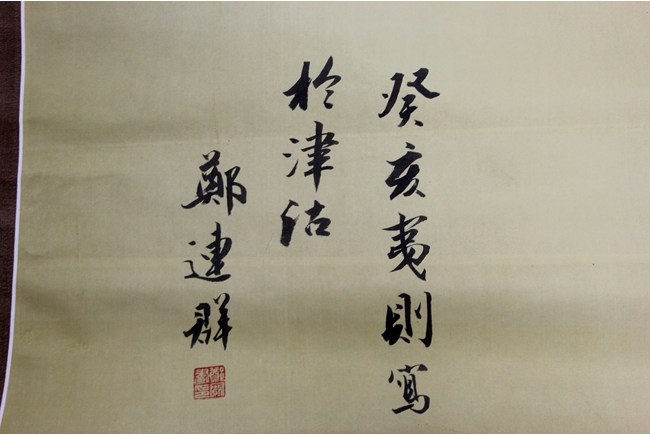 癸亥夷則寫
於津沽
鄭連群